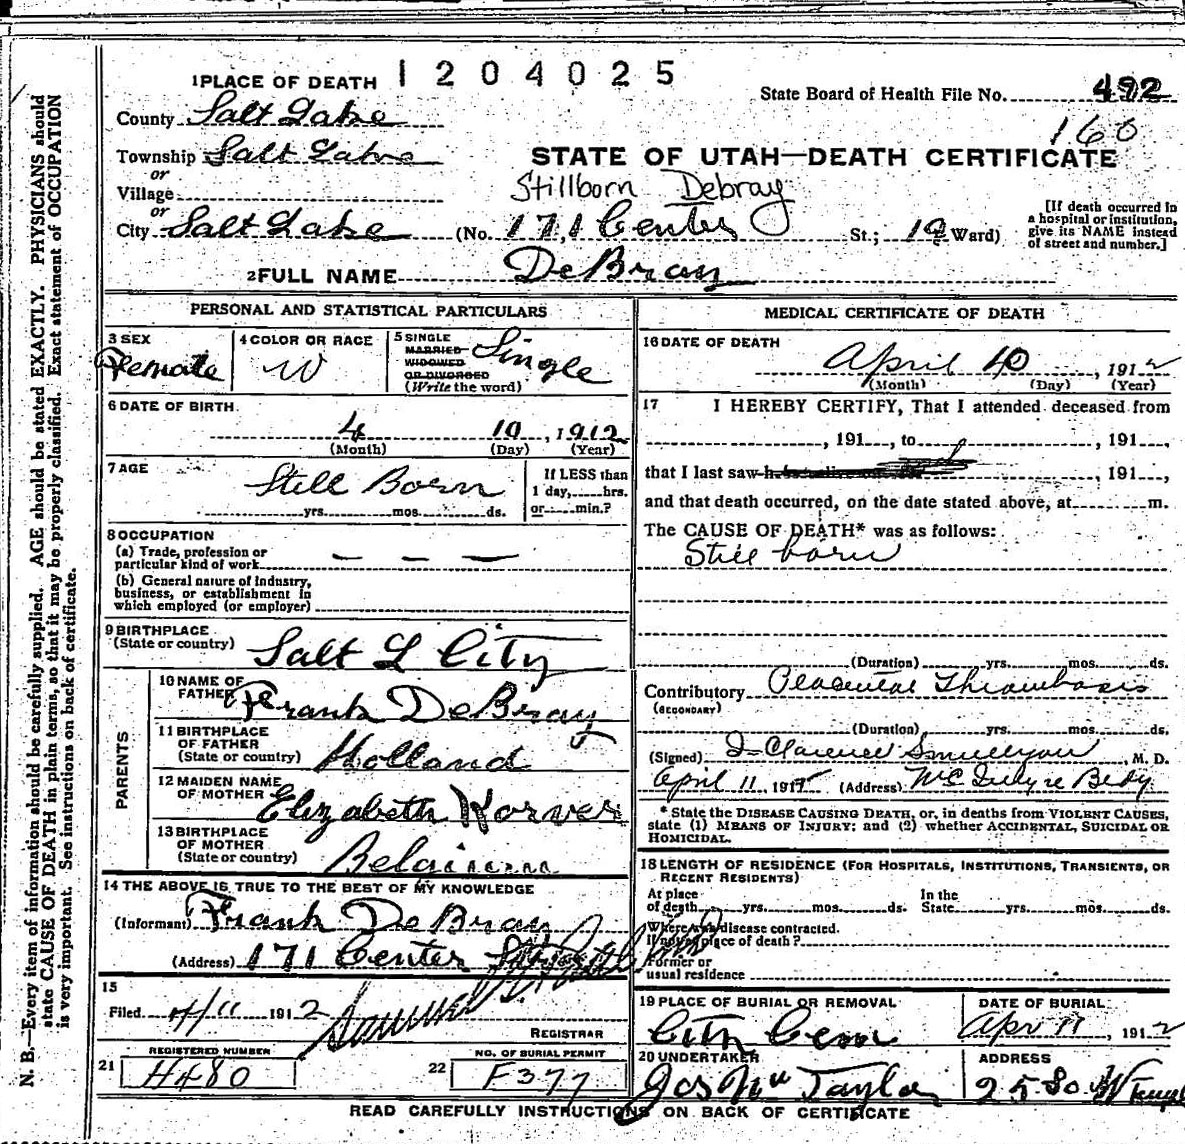 1 PLACE OF DEATH 1204025
State Board of Health File No. 492
160
County Salt Lake
Township Salt Lake
or
Village
or
City Salt Lake
STATE OF UTAH—DEATH CERTIFICATE
Stillborn Debray
(No. 171 Center St.; 19 Ward)
[If death occurred in a hospital or institution, give its NAME instead of street and number.]
2 FULL NAME DeBray
PERSONAL AND STATISTICAL PARTICULARS
3 SEX
Female
4 COLOR OR RACE
W
5 SINGLE
MARRIED
WIDOWED
OR DIVORCED
(Write the word)
Single
6 DATE OF BIRTH
4 10, 1912
(Month) (Day) (Year)
7 AGE
Still Born
yrs. mos. ds.
If LESS than
1 day, hrs.
or min.?
8 OCCUPATION
(a) Trade, profession or
particular kind of work — — —
(b) General nature of industry,
business, or establishment in
which employed (or employer)
9 BIRTHPLACE
(State or country) Salt L City
PARENTS
10 NAME OF
FATHER Frank DeBray
11 BIRTHPLACE
OF FATHER
(State or country) Holland
12 MAIDEN NAME
OF MOTHER Elizabeth Korver
13 BIRTHPLACE
OF MOTHER
(State or country) Belgium
14 THE ABOVE IS TRUE TO THE BEST OF MY KNOWLEDGE
(Informant) Frank DeBray
(Address) 171 Center
15
Filed 4/11 1912
REGISTRAR
21 REGISTERED NUMBER
H480
22 NO. OF BURIAL PERMIT
F377
MEDICAL CERTIFICATE OF DEATH
16 DATE OF DEATH
April 10, 1912
(Month) (Day) (Year)
17 I HEREBY CERTIFY, That I attended deceased from
, 191 , to , 191 ,
that I last saw , 191 ,
and that death occurred, on the date stated above, at m.
The CAUSE OF DEATH* was as follows:
Still born
(Duration) yrs. mos. ds.
Contributory Placental Thrombosis
(SECONDARY)
(Duration) yrs. mos. ds.
(Signed) Clarence , M. D.
April 11, 191 (Address)
* State the DISEASE CAUSING DEATH, or, in deaths from VIOLENT CAUSES,
state (1) MEANS OF INJURY; and (2) whether ACCIDENTAL, SUICIDAL OR
HOMICIDAL.
18 LENGTH OF RESIDENCE (FOR HOSPITALS, INSTITUTIONS, TRANSIENTS, OR
RECENT RESIDENTS)
At place
of death yrs. mos. ds.
In the
State yrs. mos. ds.
Where was disease contracted.
If not at place of death?
Former or
usual residence
19 PLACE OF BURIAL OR REMOVAL
City Cem
DATE OF BURIAL
Apr 11, 1912
20 UNDERTAKER
Jos Wm Taylor
ADDRESS
READ CAREFULLY INSTRUCTIONS ON BACK OF CERTIFICATE
N. B.—Every item of information should be carefully supplied. AGE should be stated EXACTLY. PHYSICIANS should
state CAUSE OF DEATH in plain terms, so that it may be properly classified. Exact statement of OCCUPATION
is very important. See instructions on back of certificate.